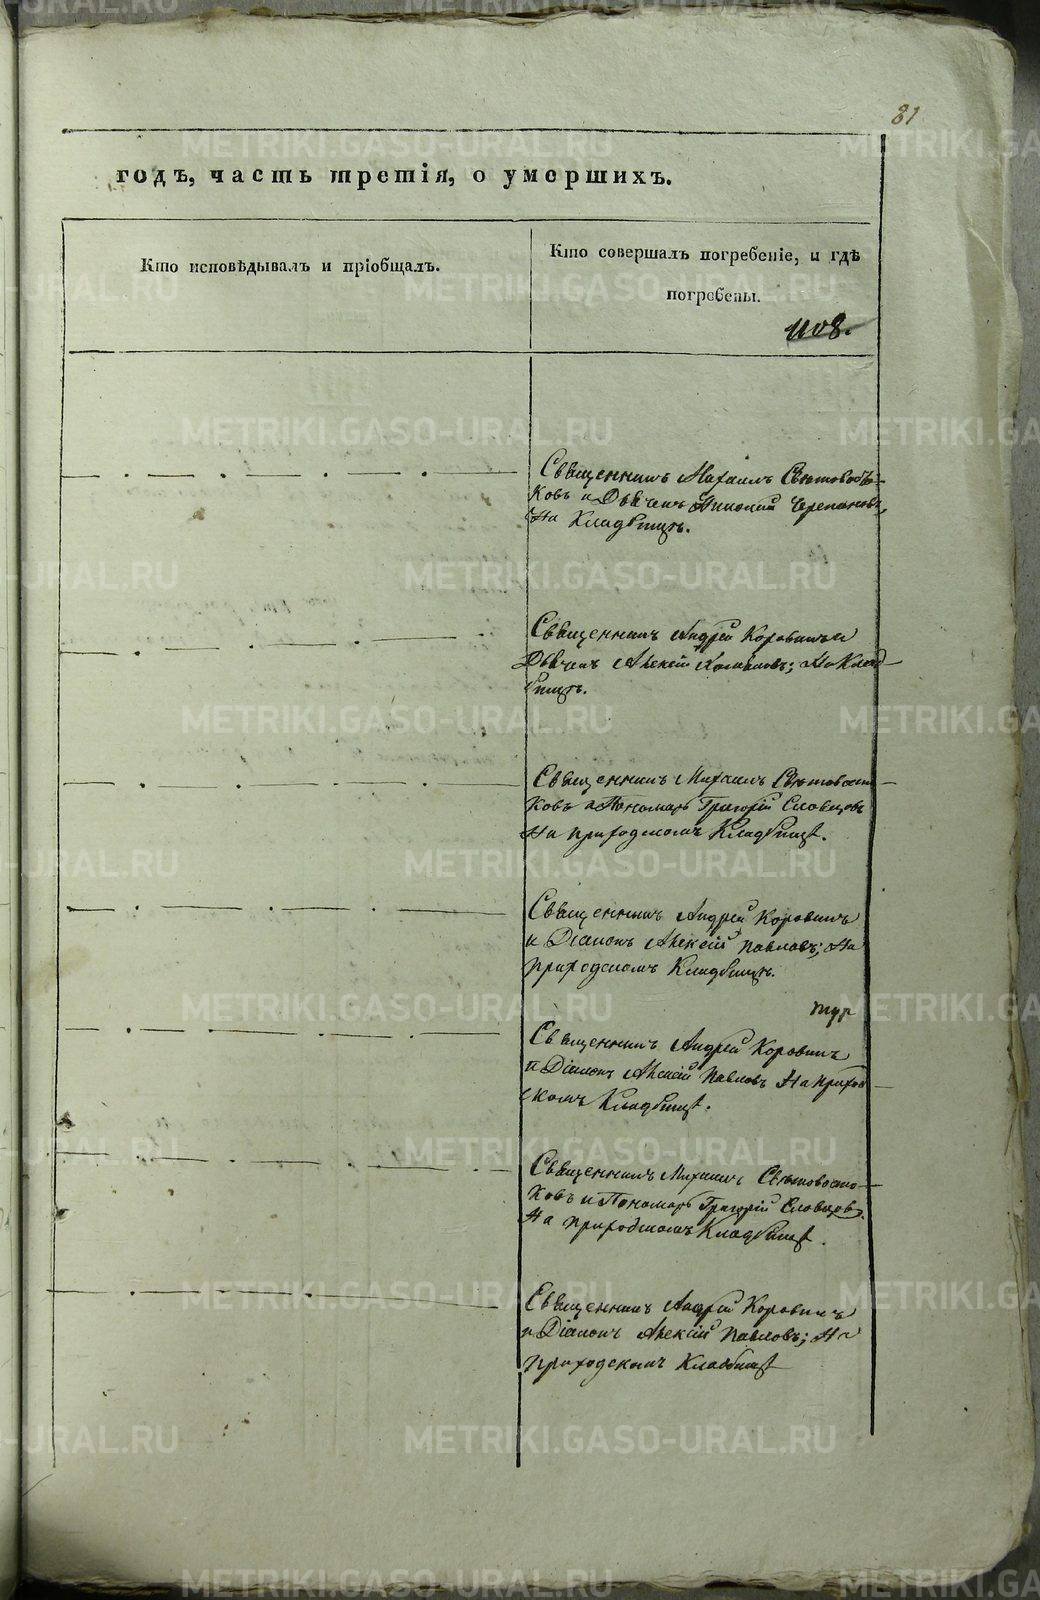 81
годъ, часть третія, о умершихъ.
Кто исповѣдывалъ и пріобщалъ.
Кто совершалъ погребеніе, и гдѣ
погребены.
1108.
Священникъ Михаилъ Свѣтовосто-
ковъ и Дьячекъ Николай Черепановъ,
На Кладбищѣ.
Священникъ Андрей Коровинъ и
Дьячекъ Алексій; На Клад-
бищѣ.
Священникъ Михаилъ Свѣтовосто-
ковъ и Пономарь Григорій Словцовъ
На приходскомъ Кладбищѣ.
Священникъ Андрей Коровинъ
и Діаконъ Алексій Павловъ; На
приходскомъ Кладбищѣ.
Священникъ Андрей Коровинъ
и Діаконъ Алексій Павловъ На приход-
скомъ Кладбищѣ.
Священникъ Михаилъ Свѣтовосто-
ковъ и Пономарь Григорій Словцовъ.
На приходскомъ Кладбищѣ.
Священникъ Андрей Коровинъ
и Діаконъ Алексій Павловъ; На
приходскомъ Кладбищѣ
METRIKI.GASO-URAL.RU